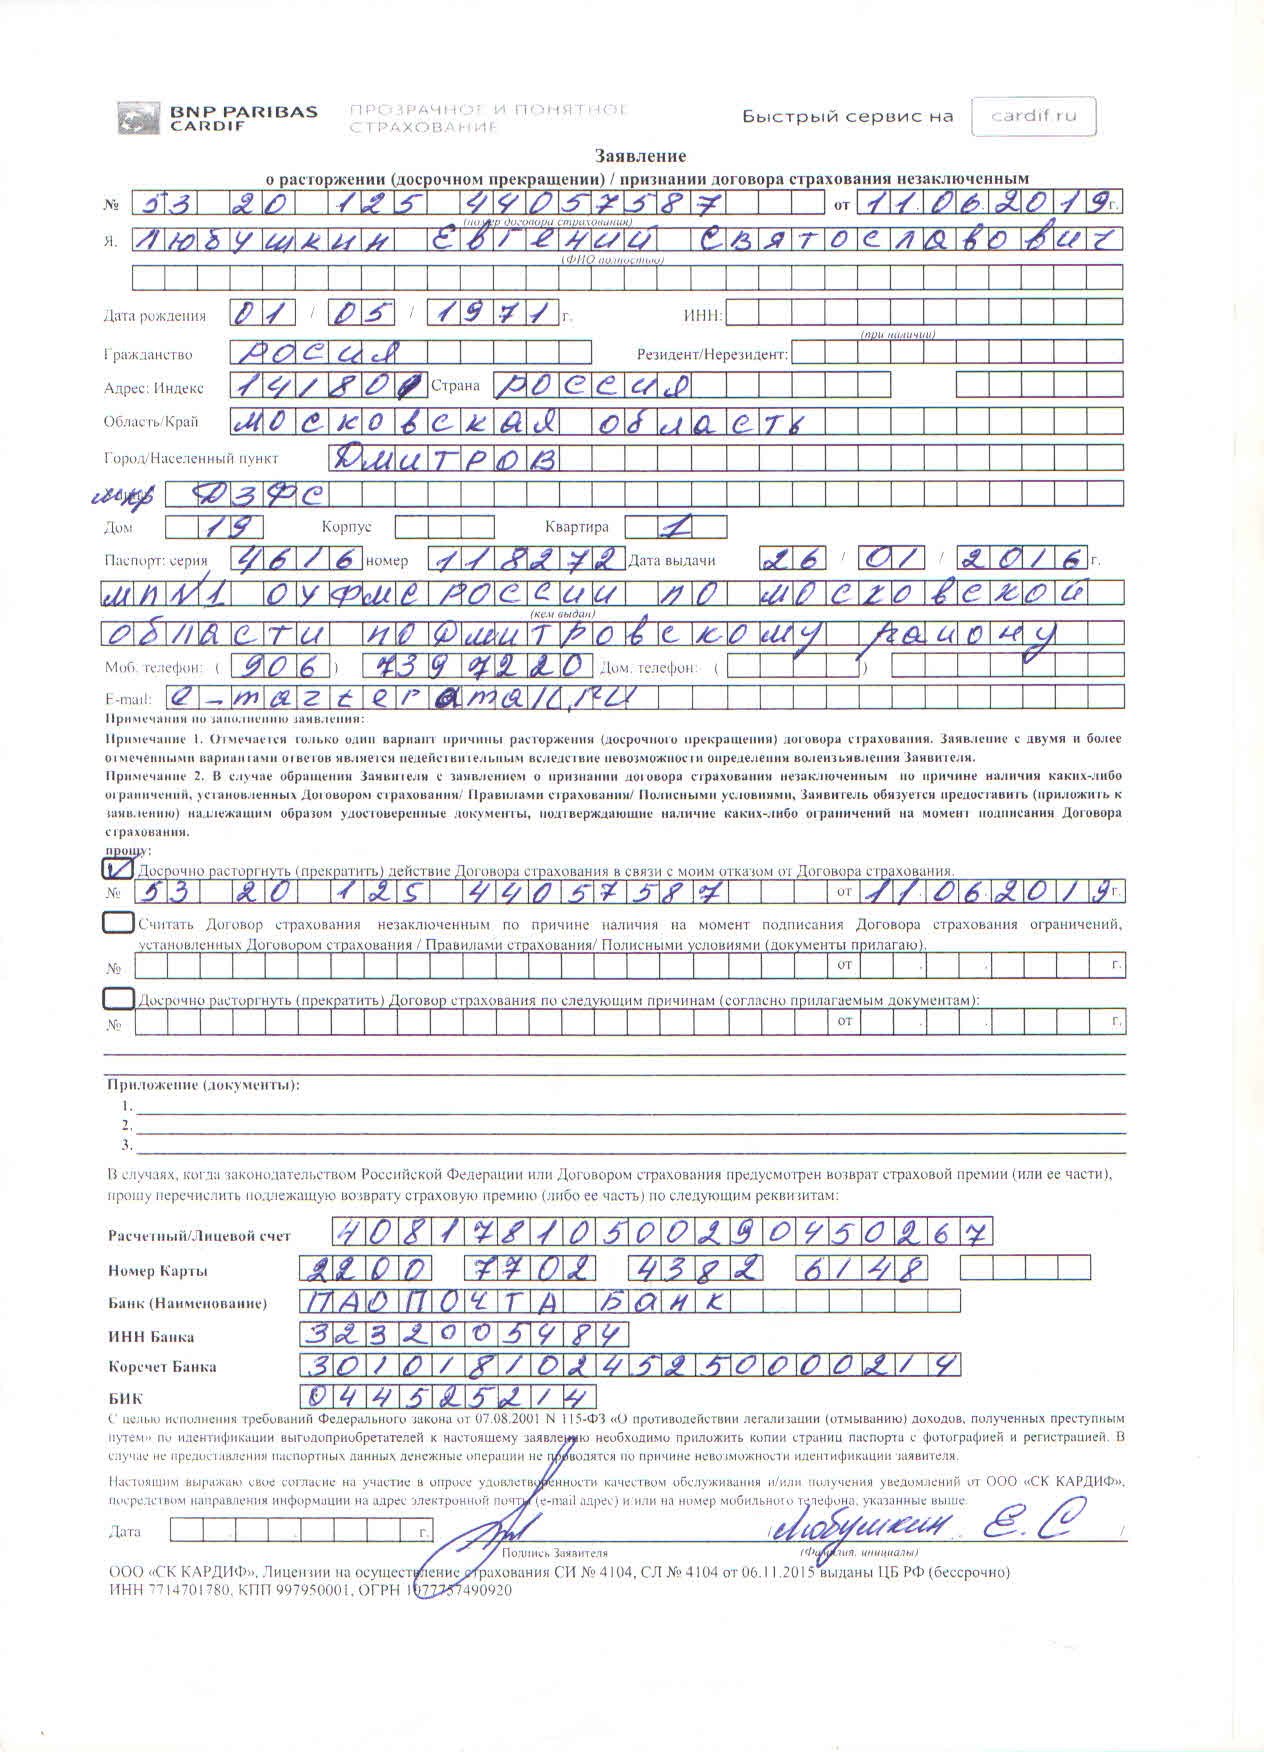 BNP PARIBAS
CARDIF
ПРОЗРАЧНОЕ И ПОНЯТНОЕ
СТРАХОВАНИЕ
Быстрый сервис на cardif.ru
Заявление
о расторжении (досрочном прекращении) / признании договора страхования незаключенным
№ 53 20 125 44057587 от 11.06.2019г.
(номер договора страхования)
Я, Любушкин Евгений Святославович
(ФИО полностью)
Дата рождения 01 / 05 / 1971 г. ИНН:
(при наличии)
Гражданство Росия Резидент/Нерезидент:
Адрес: Индекс 141800 Страна Россия
Область/Край Московская область
Город/Населенный пункт Дмитров
мкр ДЗФС
Дом 19 Корпус Квартира 1
Паспорт: серия 4616 номер 118272 Дата выдачи 26 / 01 / 2016 г.
МП №1 ОУФМС России по Московской
(кем выдан)
области по Дмитровскому району
Моб. телефон: ( 906 ) 7397220 Дом. телефон: ( )
E-mail: e-mazter@mail.ru
Примечания по заполнению заявления:
Примечание 1. Отмечается только один вариант причины расторжения (досрочного прекращения) договора страхования. Заявление с двумя и более
отмеченными вариантами ответов является недействительным вследствие невозможности определения волеизъявления Заявителя.
Примечание 2. В случае обращения Заявителя с заявлением о признании договора страхования незаключенным по причине наличия каких-либо
ограничений, установленных Договором страхования/ Правилами страхования/ Полисными условиями, Заявитель обязуется предоставить (приложить к
заявлению) надлежащим образом удостоверенные документы, подтверждающие наличие каких-либо ограничений на момент подписания Договора
страхования.
прошу:
Досрочно расторгнуть (прекратить) действие Договора страхования в связи с моим отказом от Договора страхования.
№ 53 20 125 44057587 от 11.06.2019г.
Считать Договор страхования незаключенным по причине наличия на момент подписания Договора страхования ограничений,
установленных Договором страхования / Правилами страхования/ Полисными условиями (документы прилагаю).
№ от . . г.
Досрочно расторгнуть (прекратить) Договор страхования по следующим причинам (согласно прилагаемым документам):
№ от . . г.
Приложение (документы):
1.
2.
3.
В случаях, когда законодательством Российской Федерации или Договором страхования предусмотрен возврат страховой премии (или ее части),
прошу перечислить подлежащую возврату страховую премию (либо ее часть) по следующим реквизитам:
Расчетный/Лицевой счет 40817810500290450267
Номер Карты 2200 7702 4382 6148
Банк (Наименование) ПАО ПОЧТА БАНК
ИНН Банка 3232005484
Корсчет Банка 30101810245250000214
БИК 044525214
С целью исполнения требований Федерального закона от 07.08.2001 N 115-ФЗ «О противодействии легализации (отмыванию) доходов, полученных преступным
путем» по идентификации выгодоприобретателей к настоящему заявлению необходимо приложить копии страниц паспорта с фотографией и регистрацией. В
случае не предоставления паспортных данных денежные операции не проводятся по причине невозможности идентификации заявителя.
Настоящим выражаю свое согласие на участие в опросе удовлетворенности качеством обслуживания и/или получения уведомлений от ООО «СК КАРДИФ»,
посредством направления информации на адрес электронной почты (e-mail адрес) и/или на номер мобильного телефона, указанные выше.
Дата . . г. / Любушкин Е.С /
Подпись Заявителя (Фамилия, инициалы)
ООО «СК КАРДИФ», Лицензии на осуществление страхования СИ № 4104, СЛ № 4104 от 06.11.2015 выданы ЦБ РФ (бессрочно)
ИНН 7714701780, КПП 997950001, ОГРН 1077757490920